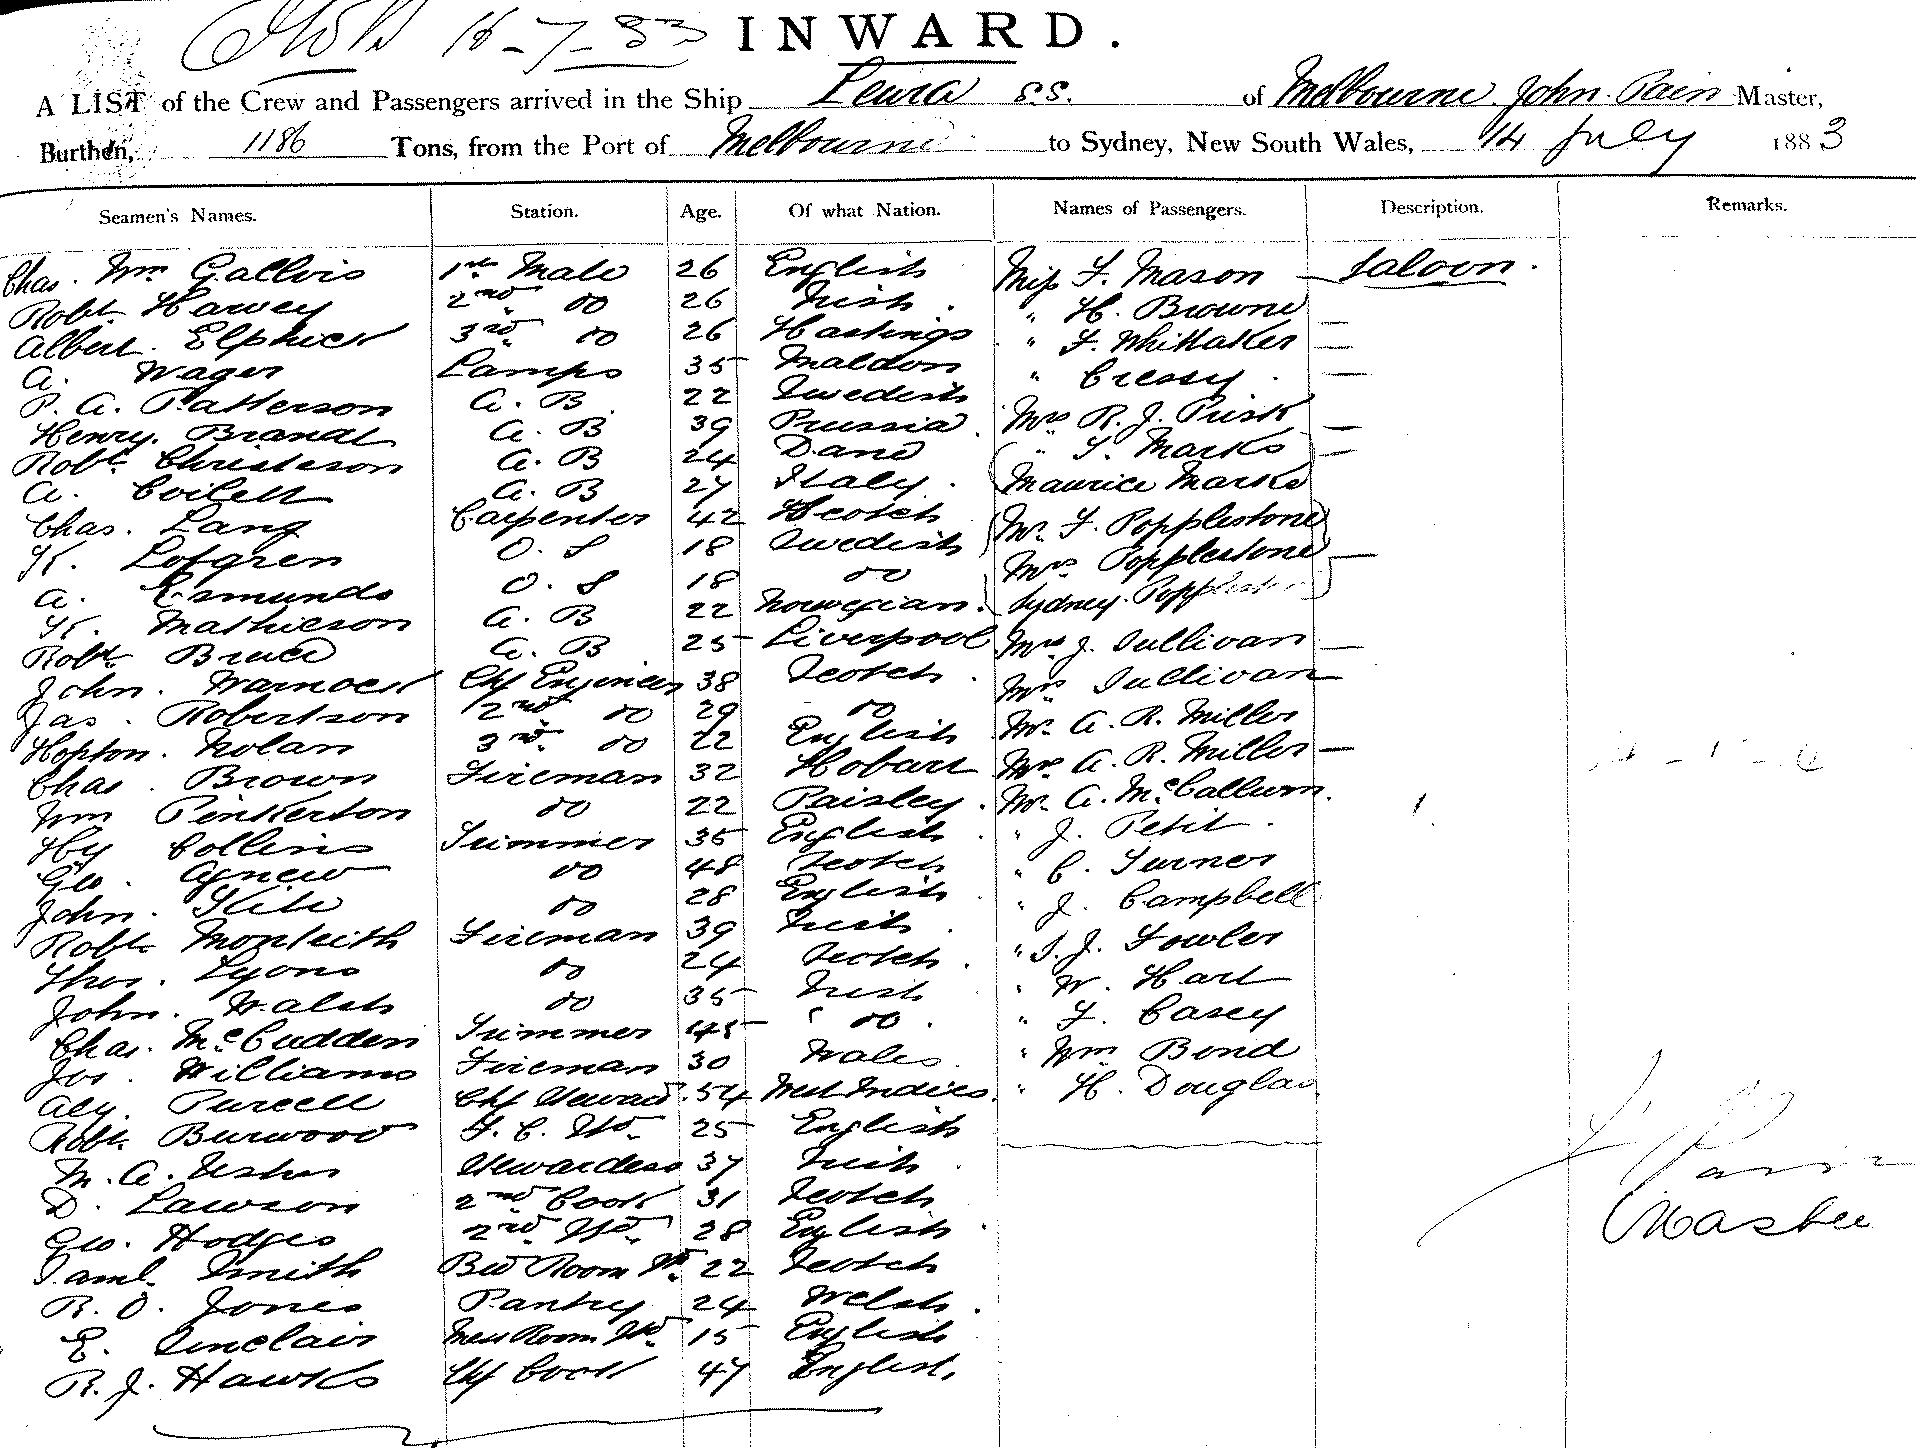 16-7-83 INWARD.
A LIST of the Crew and Passengers arrived in the Ship Leura s.s. of Melbourne John Pain Master,
Burthen, 1186 Tons, from the Port of Melbourne to Sydney, New South Wales, 14 July 1883
Seamen's Names. Station. Age. Of what Nation. Names of Passengers. Description. Remarks.
Chas. Wm Gallois 1st Mate 26 English Miss F. Mason — Saloon.
Robt Harvey 2nd do 26 Irish. " H. Browne
Albert. Elphick 3rd do 26 Hastings " F. Whittaker —
A. Wager Lamps 35 Maldon " Cressy. —
P. A. Patterson A. B 22 Swedish Mrs R. J. Prisk
Henry. Brandt A. B 39 Prussia. " S. Marks —
Robt Christeson A. B 24 Dane Maurice Marks
A. A. B 27 Italy. Mr. F. Popplestone
Chas. Lang Carpenter 42 Scotch Mrs Popplestone —
K. Lofgren O. S 18 Swedish Sydney. Popplestone
A. Esmunds O. S 18 do Mr. J. Sullivan —
K. Mathieson A. B 22 Norwegian. Mrs Sullivan —
Robt Bruce A. B 25 Liverpool Mr A. R. Miller
John. Warnock Chf Engineer 38 Scotch. Mrs A. R. Miller —
Jas. Robertson 2nd do 29 do Mr. A. McCallum.
Hopton. Nolan 3rd. do 22 English " J. Petit.
Chas. Brown Fireman 32 Hobart " C. Turner
Wm Pinkerton do 22 Paisley. " J. Campbell
Hy Collins Trimmer 35 English. " S. J. Fowler
Geo. Agnew do 48 Scotch " W. Hart
John. do 28 English. " F. Casey
Robt Monteith Fireman 39 Irish. " Wm Bond
Thos. Lyons do 24 Scotch. " H. Douglas
John. Walsh do 35 Irish
Chas. McCudden Trimmer 45 do.
Jos. Williams Fireman 30 Wales
Alex. Purcell Chf Steward. 54 West Indies.
Robt Burwood F. C. Std. 25 English
M. A. Usher Stewardess 37 Irish.
D. Lawson 2nd Cook 31 Scotch
Geo. Hodges 2nd Std. 28 English.
Saml. Smith Bed Room Std. 22 Scotch
R. O. Jones Pantry 24 Welsh.
E. Sinclair Mess Room Std. 15 English
R. J. Hawks Chf Cook 47 English.
J Pain
Master